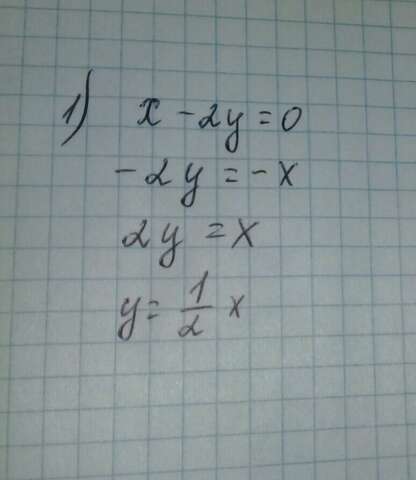 1) x - 2y = 0
-2y = -x
2y = x
y = 1/2 x